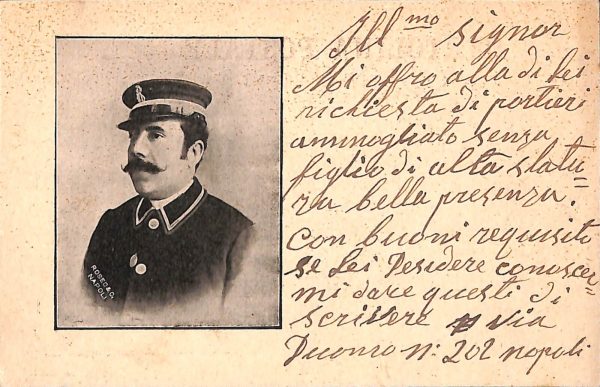 Ill.mo signor
Mi offro alla di Lei
richiesta di portieri
ammogliato senza
figlio di alta statu=
ra bella presenza.
Con buoni requisito
se Lei Desidere conoscer=
mi dare questi di
scrivere Via
Duomo N: 202 napoli
ROBEO & C.
NAPOLI